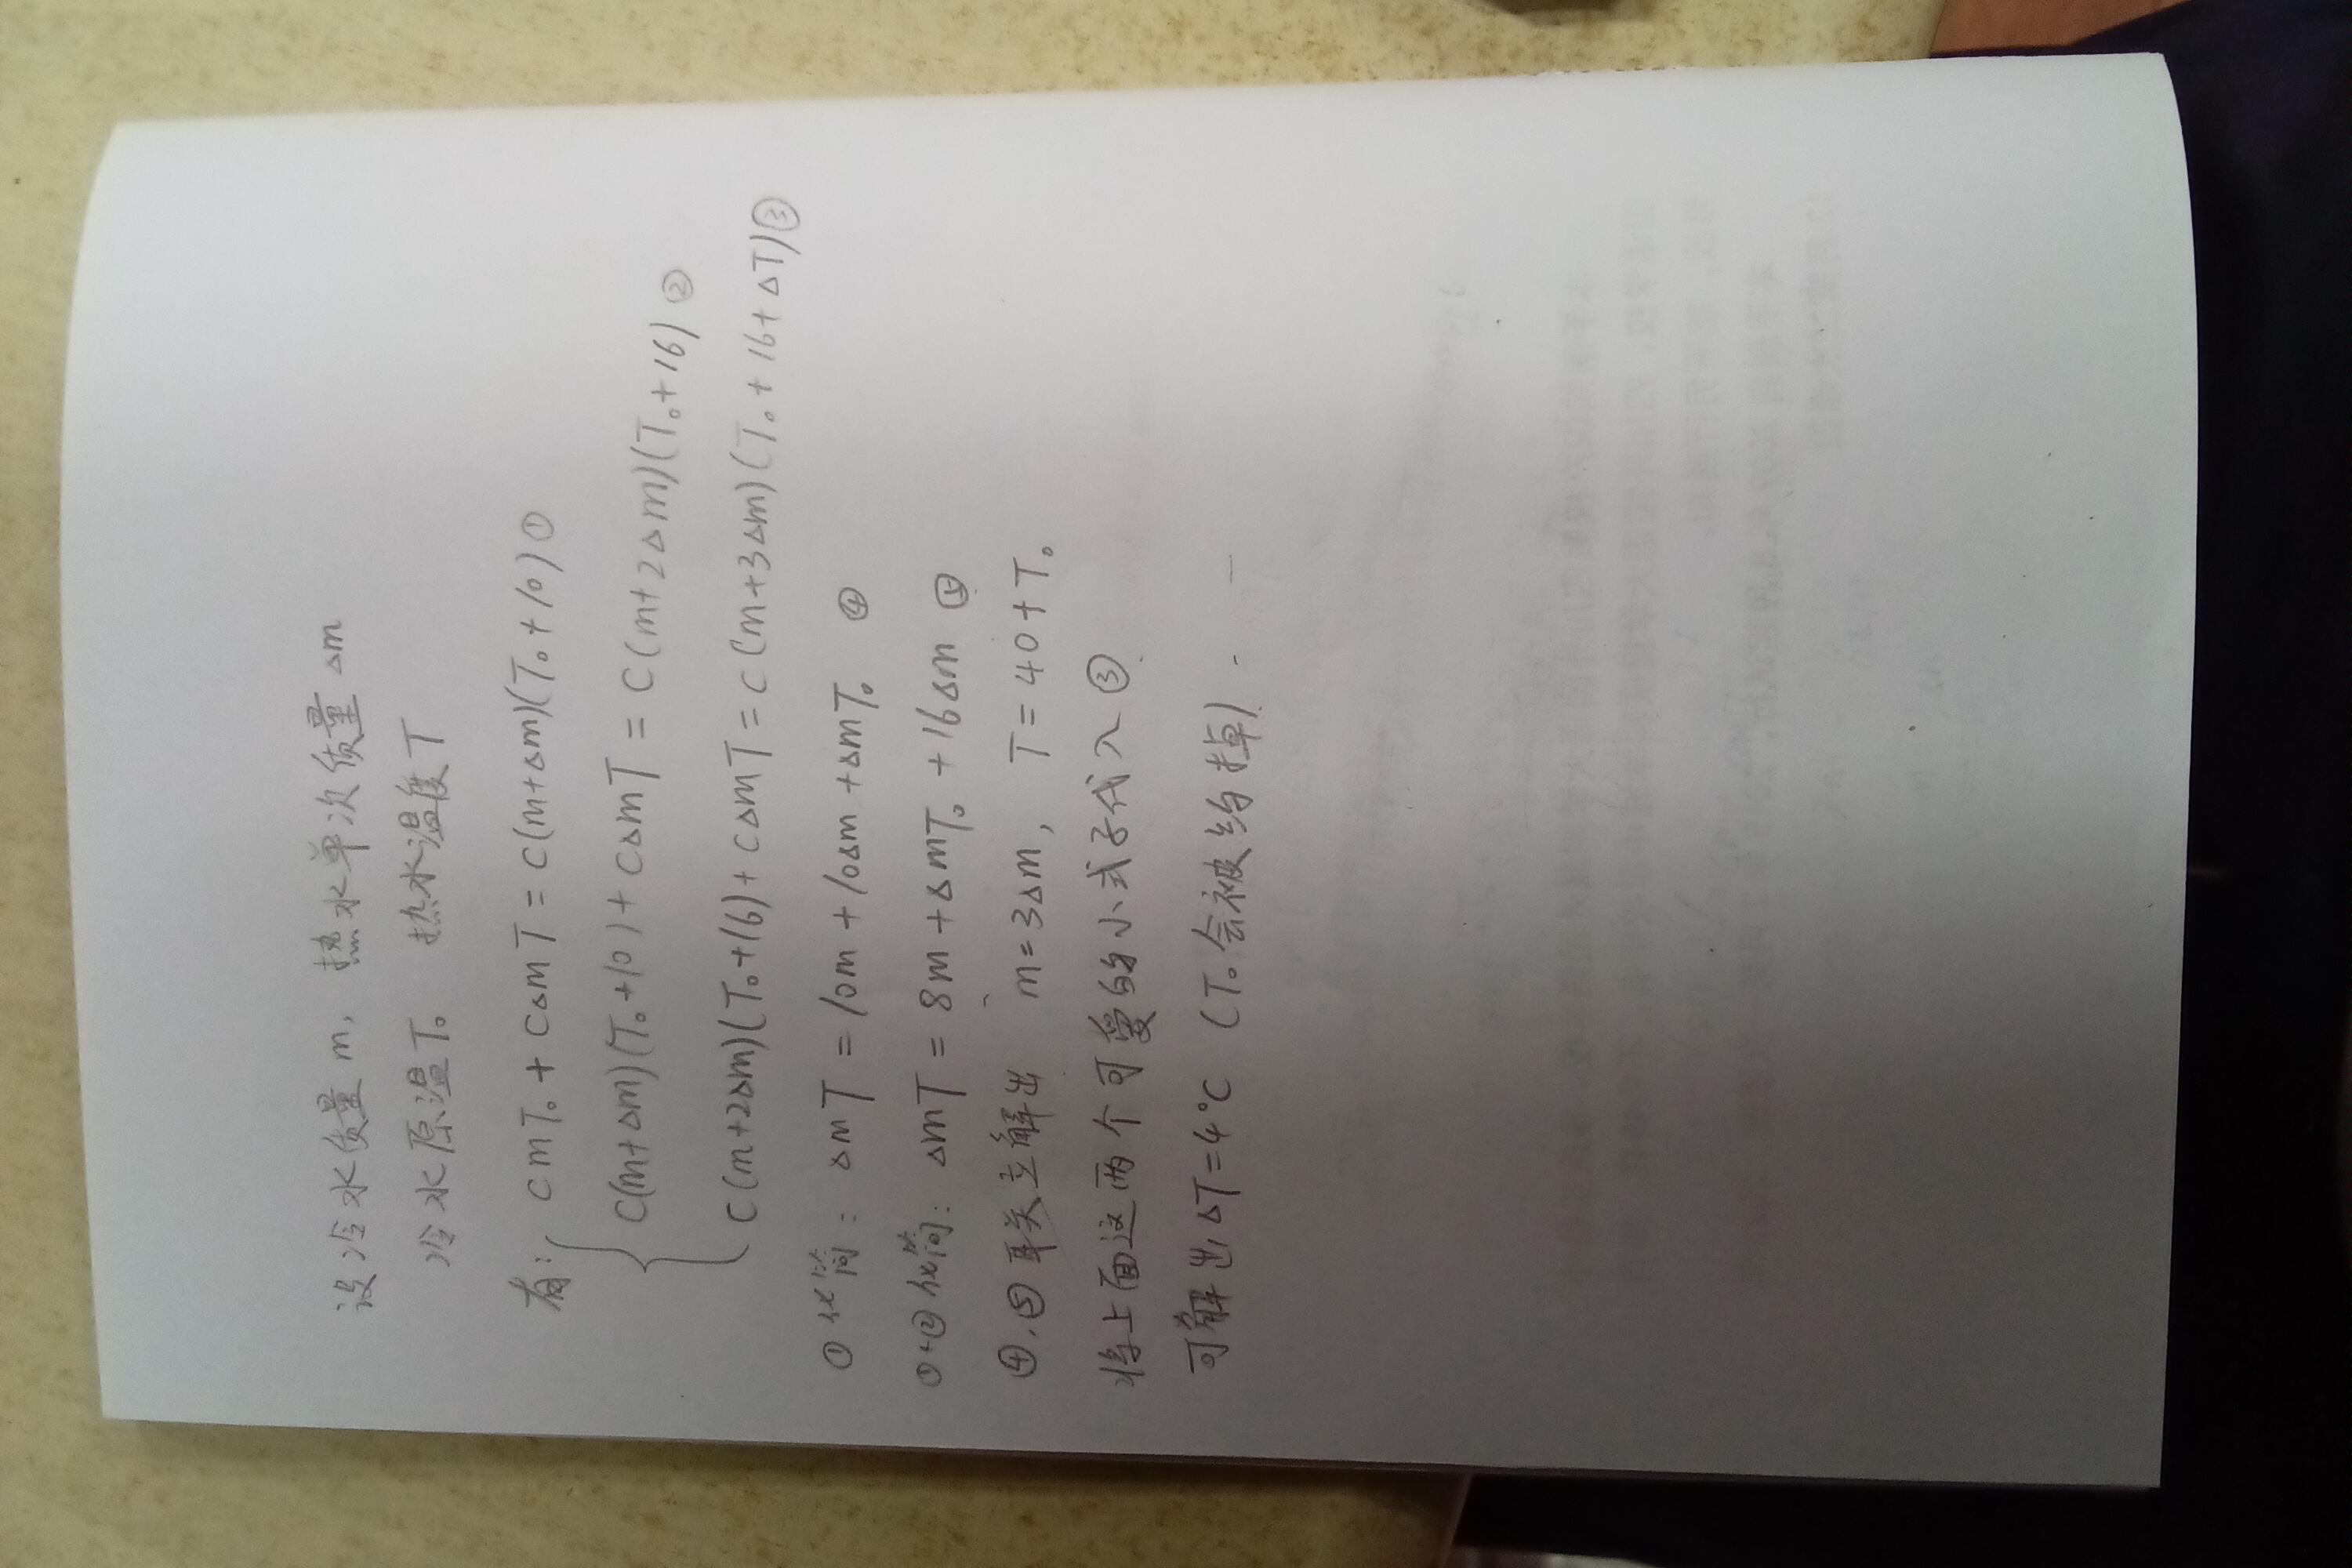 设冷水质量m，热水单次质量△m
冷水原温T₀ 热水温度T
有：{ cmT₀ + c△mT = c(m+△m)(T₀+10) ①
c(m+△m)(T₀+10) + c△mT = c(m+2△m)(T₀+16) ②
c(m+2△m)(T₀+16) + c△mT = c(m+3△m)(T₀+16+△T) ③
①化简：△mT = 10m + 10△m + △mT₀ ④
①+②化简：△mT = 8m + △mT₀ + 16△m ⑤
④、⑤联立解出 m=3△m， T=40+T₀
将上面这两个可爱的小式子代入③
可解出△T=4℃ （T₀会被约掉）